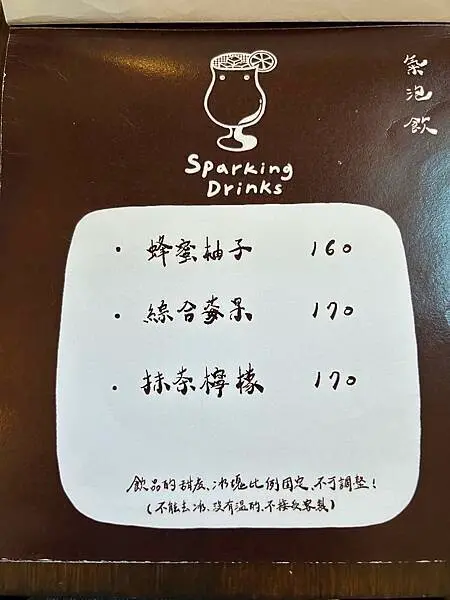 氣泡飲
Sparking
Drinks
· 蜂蜜柚子 160
· 綜合莓果 170
· 抹茶檸檬 170
飲品的甜度、冰塊比例固定、不可調整!
(不能去冰、沒有溫的、不接受客製)